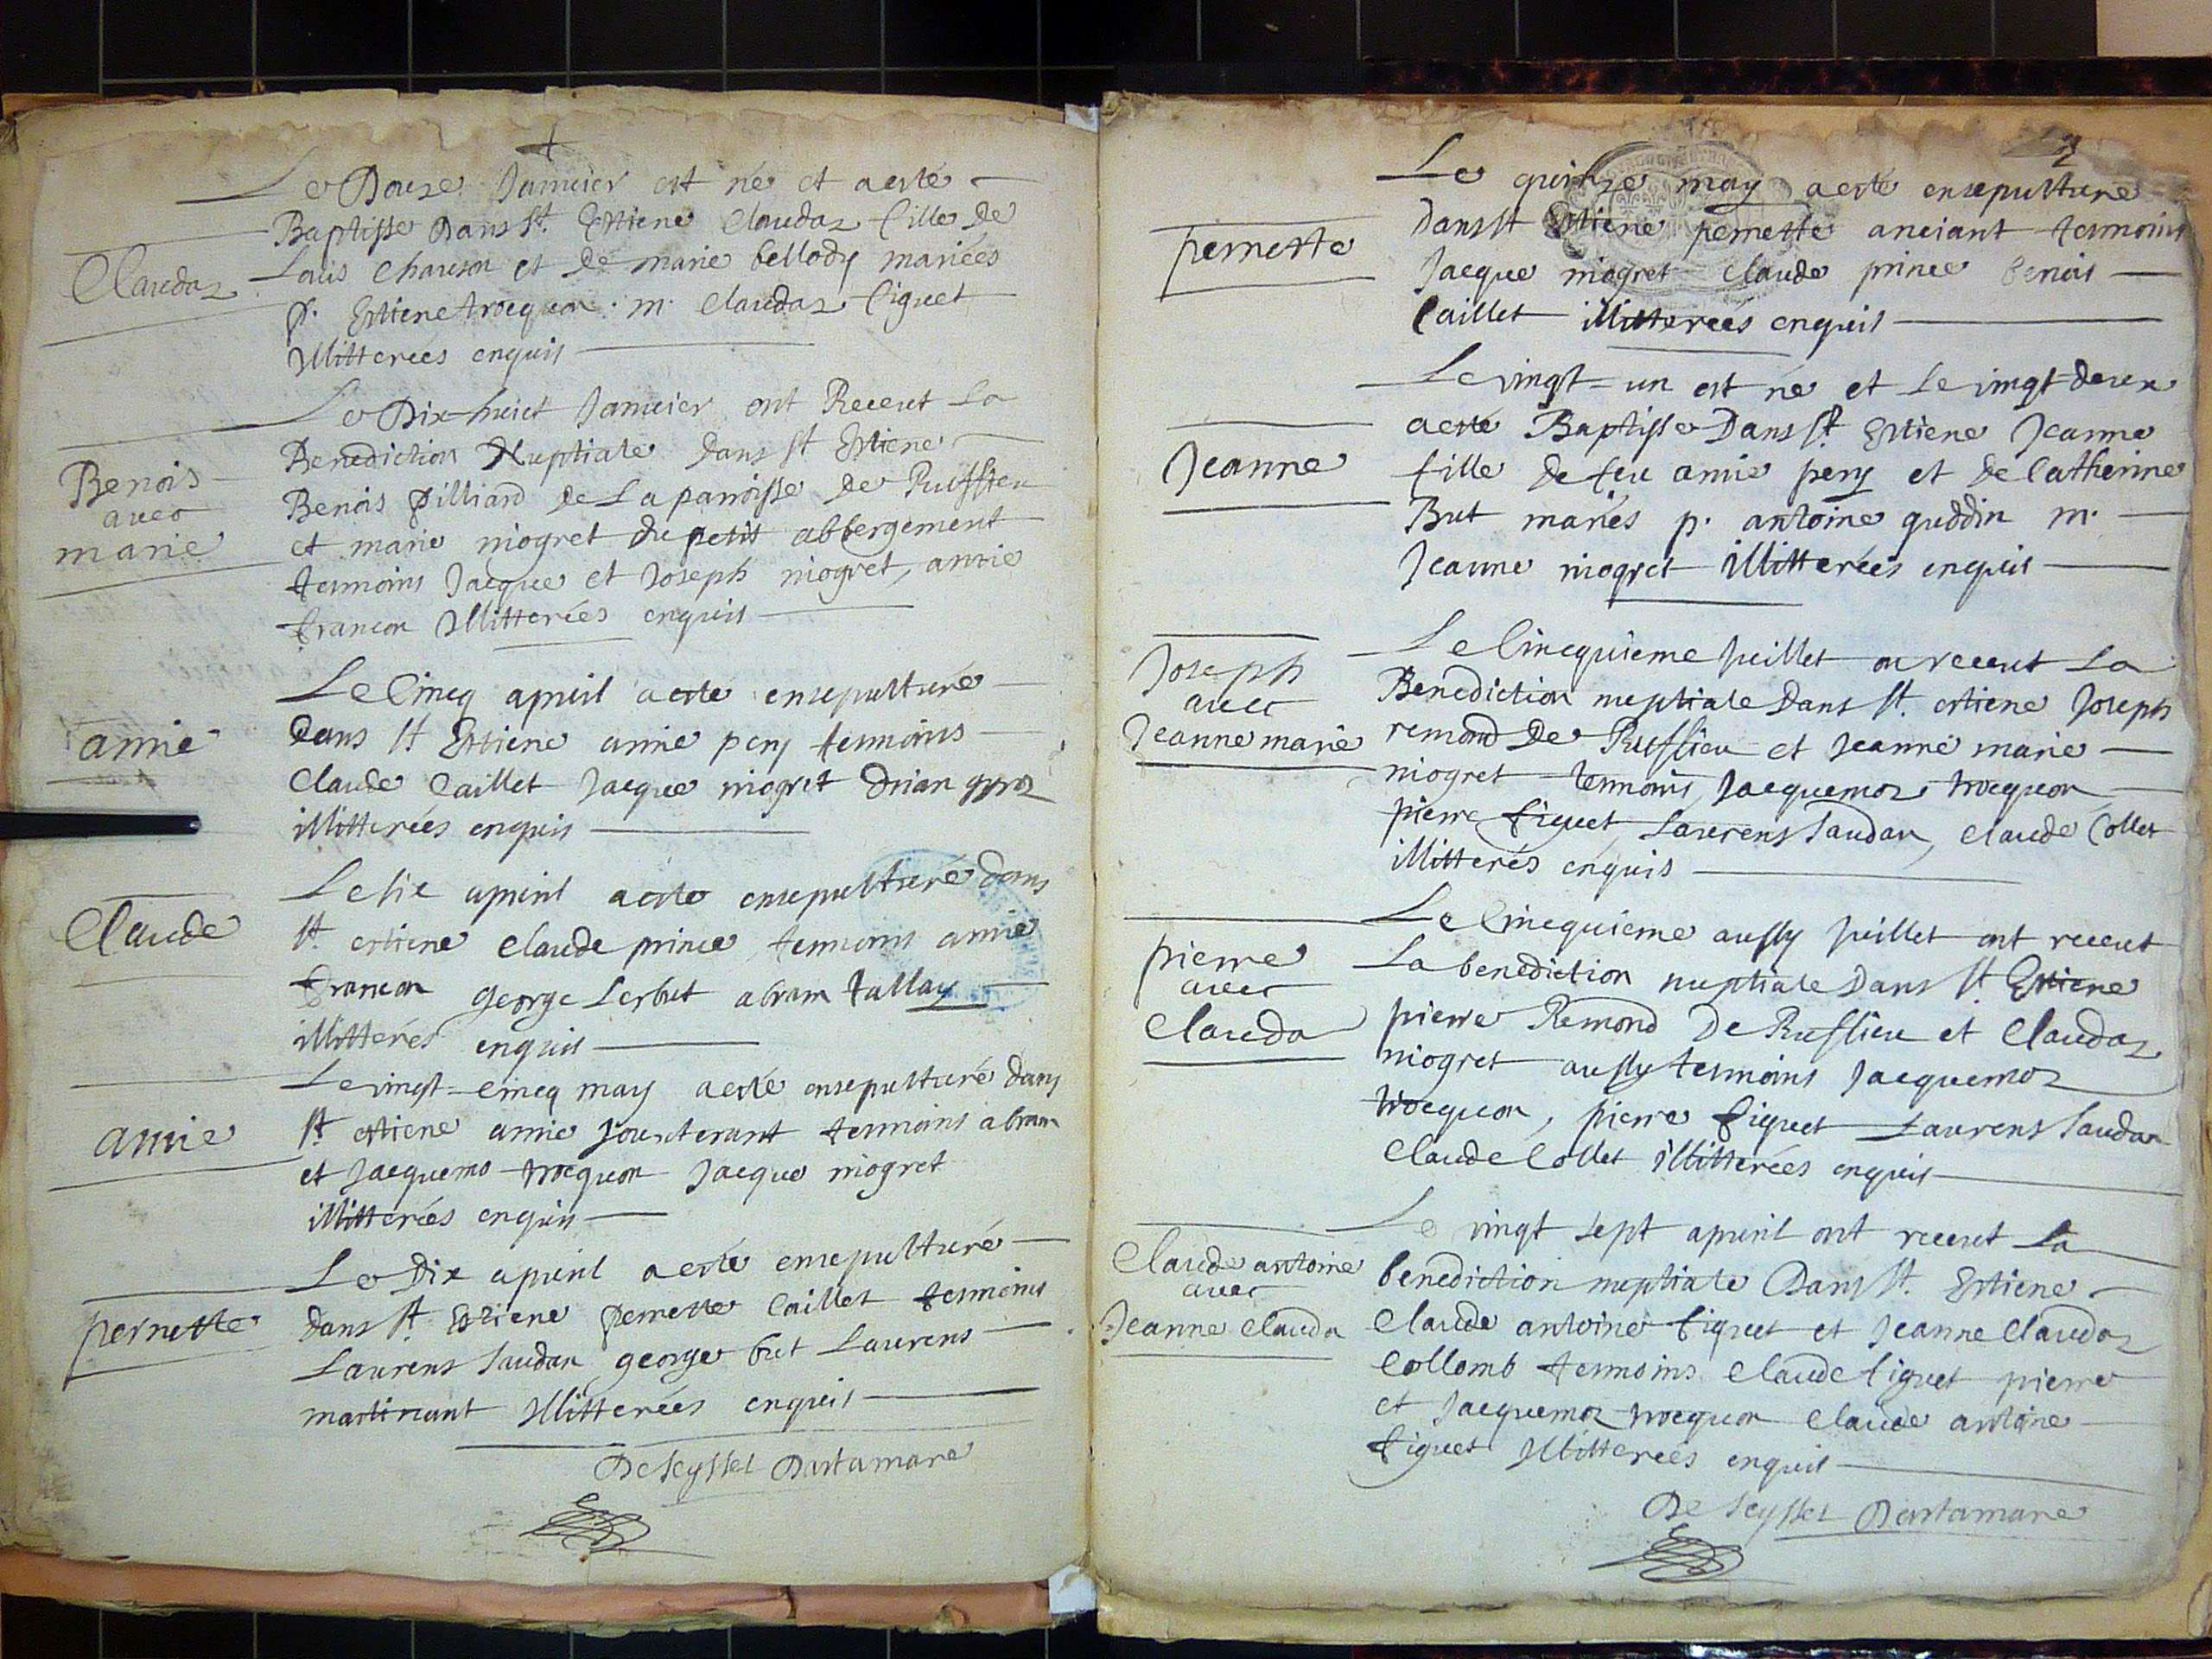 Le Douze Januier est né et a esté
Baptisse Dans St. Estiene Claudaz fille de
Claudaz
Louis Chauson et De marie bellody mariées
p. Estiene trocquon. m. Claudaz figuet
illitterées enquis
Le Dix-huict Januier ont Receut La
Benediction Nuptiale Dans St Estiene
Benois
avec
marie
Benois Billiard de La paroisse De Ruffieu
et marie niogret du petit abbergement
tesmoins Jacque et Joseph niogret, amie
francon illitterées enquis
Le Cincq apuril a esté ensepulturé
amie
Dans St Estiene amie pery tesmoins
Claude Caillet Jacque niogret
illitterées enquis
Le six apuril a esté ensepulturé dans
Claude
St. estiene Claude prince, tesmoins amie
francon george Lesbut abram tallay
illitterés enquis
Le vingt-cincq may a esté ensepulturé dans
amie
St estiene amie tesmoins abram
et Jacquemo trocquon Jacque niogret
illitterées enquis
Le Dix apuril a esté ensepulturé
pernette
dans St Estiene pernette Caillet tesmoins
Laurens Saudan george but Laurens
martinant illitterées enquis
De Seyssel Dartamare
Le quinze may a esté ensepulture
pernette
Dans St Estiene pernette anciant tesmoins
Jacque niogret Claude prince benois
Caillet illitterées enquis
Le vingt=un est né et Le vingt deux
a esté Baptisse Dans St Estiene Jeanne
Jeanne
fille de feu amie pery et de Catherine
But mariés p. antoine guddin m.
Jeanne niogret illitterées enquis
Le Cincquieme Juillet on receut La
Joseph
avec
Jeanne marie
Benediction nuptiale Dans St. estiene Joseph
remond De Ruffieu et Jeanne marie
niogret tesmoins, Jacquemoz trocquon
pierre figuet, Laurens Saudan, Claude Collet
illitterés enquis
Le Cincquieme aussy Juillet ont receut
pierre
avec
Clauda
La benediction nuptiale Dans St Estiene
pierre Remond De Ruffieu et Claudaz
niogret aussy tesmoins Jacquemoz
trocquon, pierre figuet Laurens Saudan
Claude Collet illitterées enquis
Le vingt sept apuril ont receut La
Claude antoine
avec
Jeanne Clauda
benediction nuptiale Dans St. Estiene
Claude antoine figuet et Jeanne Claudaz
Collomb tesmoins Claude figuet pierre
et Jacquemoz trocquon Claude antoine
figuet illitterées enquis
De Seyssel Dartamare